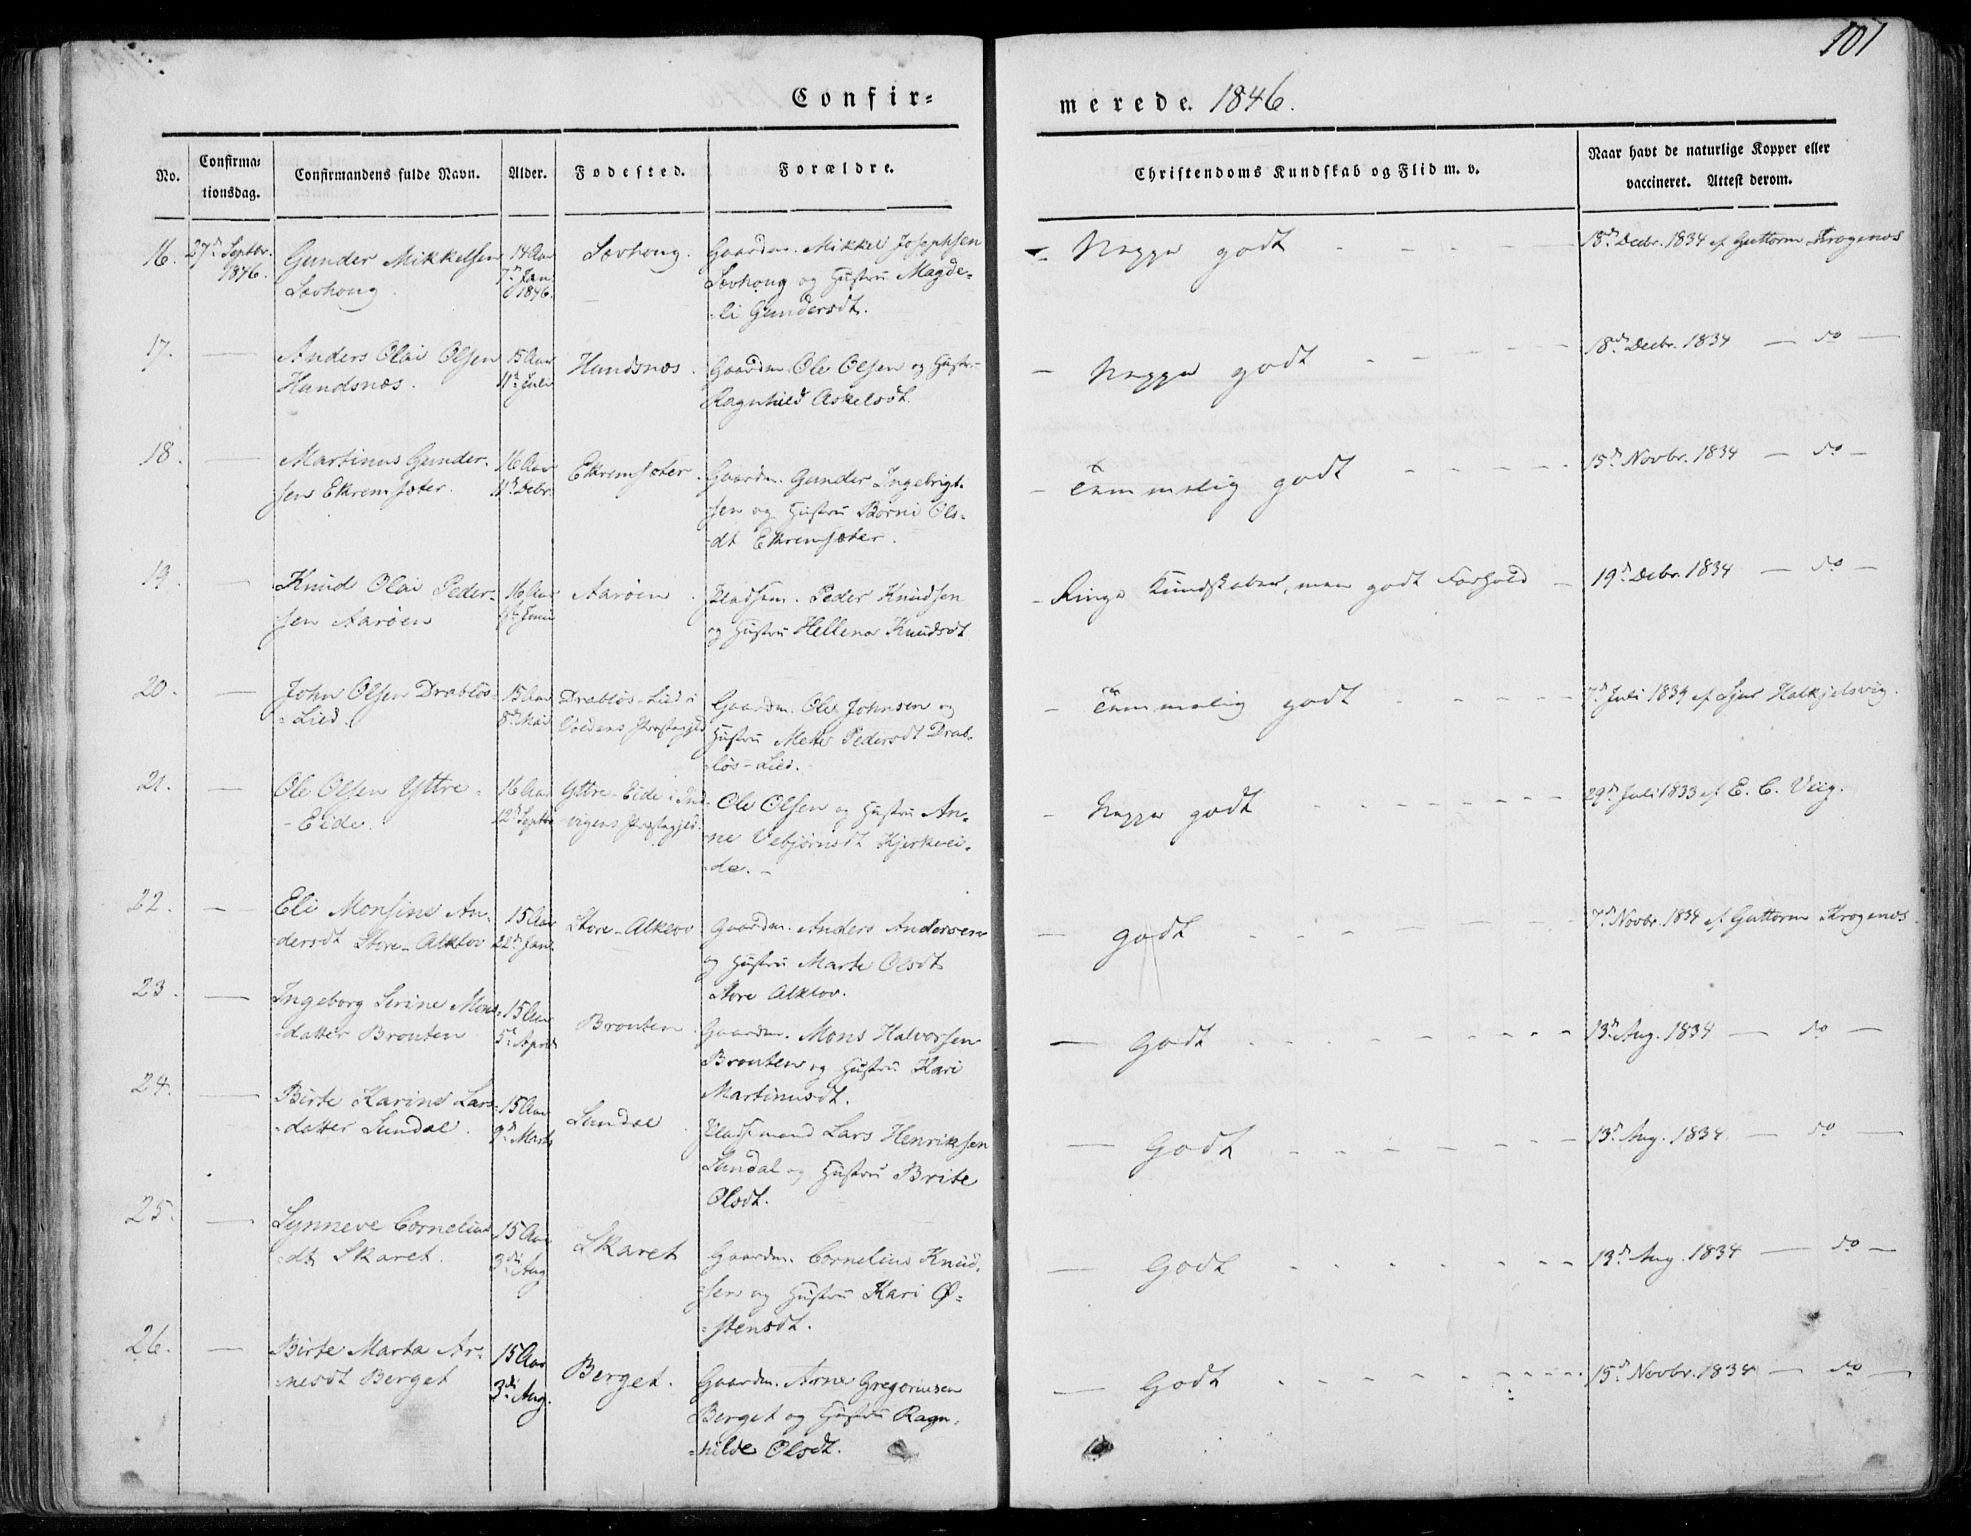 101
Confir-
merede. 1846.
No.
Confirma-
tionsdag.
Confirmandens fulde Navn.
Alder.
Fødested.
Forældre.
Christendoms Kundskab og Flid m. v.
Naar havt de naturlige Kopper eller
vaccineret. Attest derom.
16.
27de Septbr.
1846.
Gunder Mikkelsen
Søvhoug
14 Aar
7de Jan.
1846.
Søvhoug.
Gaardm. Mikkel Josephsen
Søvhoug og Hustru Magde-
-li Gundersdt.
Neppe godt
18de Decbr. 1834 af Guttorm Krogenæs
17.
Anders Olai Olsen
Hundsnæs.
15 Aar
11te Juli
Hundsnæs.
Gaardm. Ole Olsen og Hustr.
Ragnhild Askelsdt.
Neppe godt
18de Decbr. 1834 — do —
18.
Martinus Gunder-
sen Ekremsæter.
16 Aar
11te Debr.
Ekremsæter.
Gaardm. Gunder Ingebrigt-
sen og Hustru Borni Ols-
-dt Ekremsæter.
Temmelig godt
15de Novbr. 1834 — do —
19.
Knud Olai Peder-
sen Aarøen
16 Aar
Aarøen
Pladsm. Peder Knudsen
og Hustru Hellena Knudsdt
Ringe Kundskaber, men godt Forhold
19de Debr. 1834 — do —
20.
John Olsen Drabløs-
-Lied.
15 Aar
8de Mai
Drabløs-Lied i
Voldens Præstegjeld
Gaardm. Ole Johnsen og
Hustru Mette Pedersdt Drab-
-løs-Lied.
Temmelig godt
7de Juli 1834 af Sjur Halkjelsvig.
21.
Ole Olsen Yttre-
-Eide.
16 Aar
12te Septbr
Yttre-Eide i Ind-
-vigens Præstegjeld.
Ole Olsen og Hustru An-
-ne Vebjørnsdt Kjerkeei-
-de. -
Neppe godt
29de Juli 1833 af E. C. Viig.
22.
Eli Monsine An-
-dersdt Store-Alkløv
15 Aar
22de Jan.
Store-Alkløv
Gaardm. Anders Andersen
og Hustru Marte Olsdt
Store Alkløv.
godt
7de Novbr. 1834 af Guttorm Krogenæs
23.
Ingeborg Serine Mons-
-datter Brouten
15 Aar
5te April
Brouten.
Gaardm. Mons Halvorsen
Brouten og Hustru Kari
Martinusdt.
Godt
13de Aug. 1834 — do —
24.
Birte Karine Lars-
-datter Sundal.
15 Aar
9de Marts
Sundal.
Pladsmand Lars Henriksen
Sundal og Hustru Brite
Olsdt.
Godt
13de Aug. 1834. — do —
25.
Synneve Cornelius-
-dt Skaret.
15 Aar
3die Aug
Skaret
Gaardm. Cornelius Knud-
-sen og Hustru Kari Ø-
-stensdt.
Godt
13de Aug. 1834 — do —
26.
Birte Marta Ar-
-nesdt Berget
15 Aar
3die Aug.
Berget.
Gaardm. Arne Gregoriusen
Berget og Hustru Ragn-
-hilde Olsdt.
Godt
15de Novbr. 1834 — do —